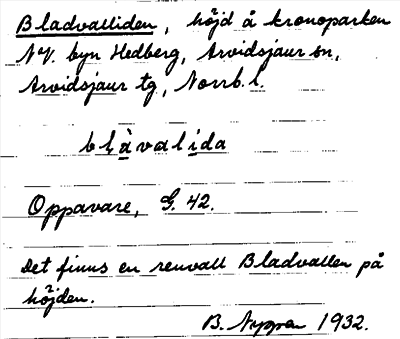 Bladvalliden, höjd å kronoparken
NV. byn Hedberg, Arvidsjaur sn,
Arvidsjaur tg, Norrb. l.
Oppavare, G. 42.
Det finns en renvall Bladvallen på
höjden.
B. 1932.